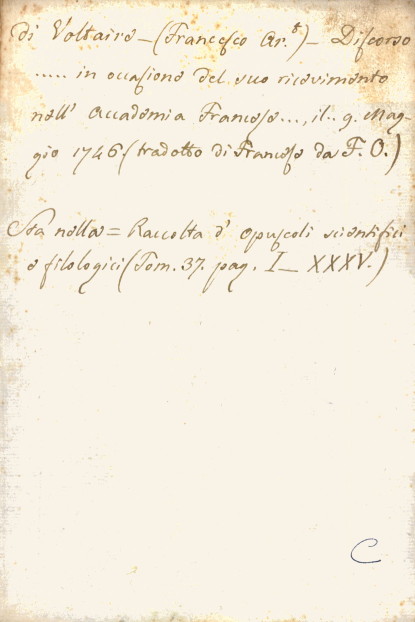 di Voltaire — (Francesco Ar.t) — Discorso
..... in occasione del suo ricevimento
nell' Accademia Francese..., il.. 9. Mag-
gio 1746 (tradotto di Francese da F. O.)
Sta nella = Raccolta d' opuscoli scientifici
e filologici (Tom. 37. pag. I — XXXV.)
C